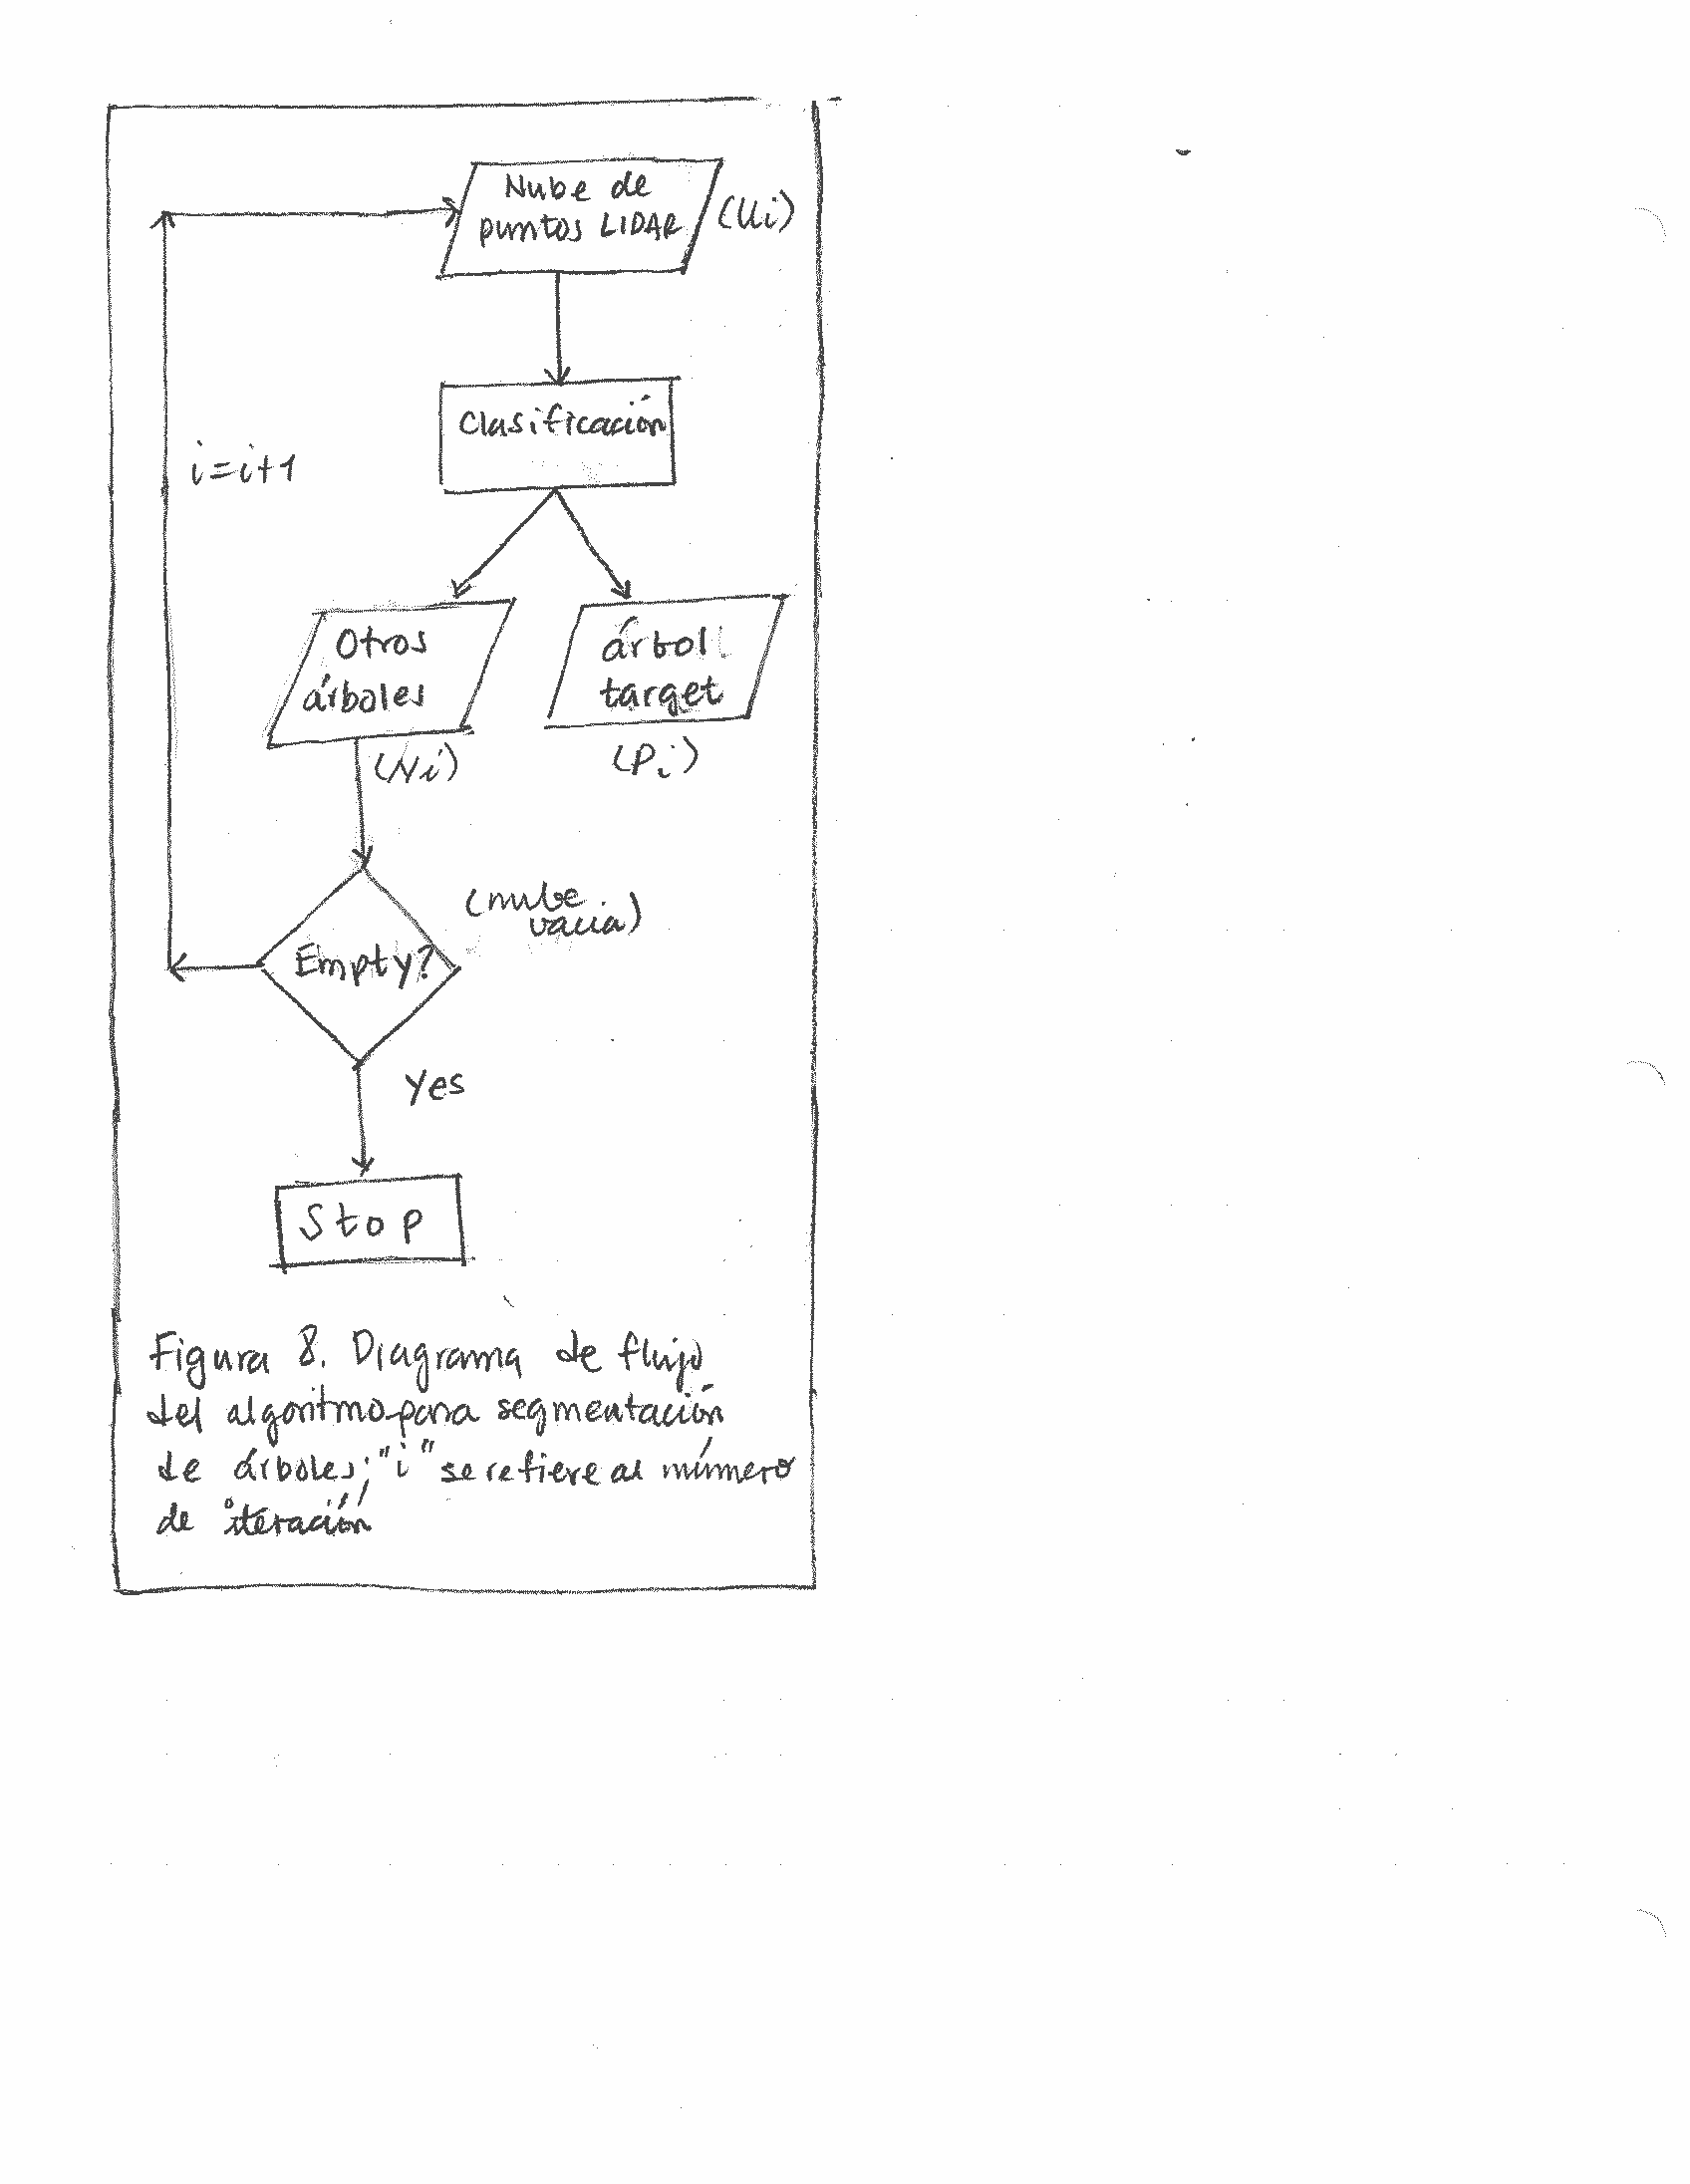 Nube de
puntos LIDAR
(Ui)
Clasificación
i=i+1
Otros
árboles
árbol
target
(Ni)
(Pi)
(nube
vacia)
Empty?
Yes
Stop
Figura 8. Diagrama de flujo
del algoritmo para segmentación
de árboles; "i" se refiere al número
de iteración